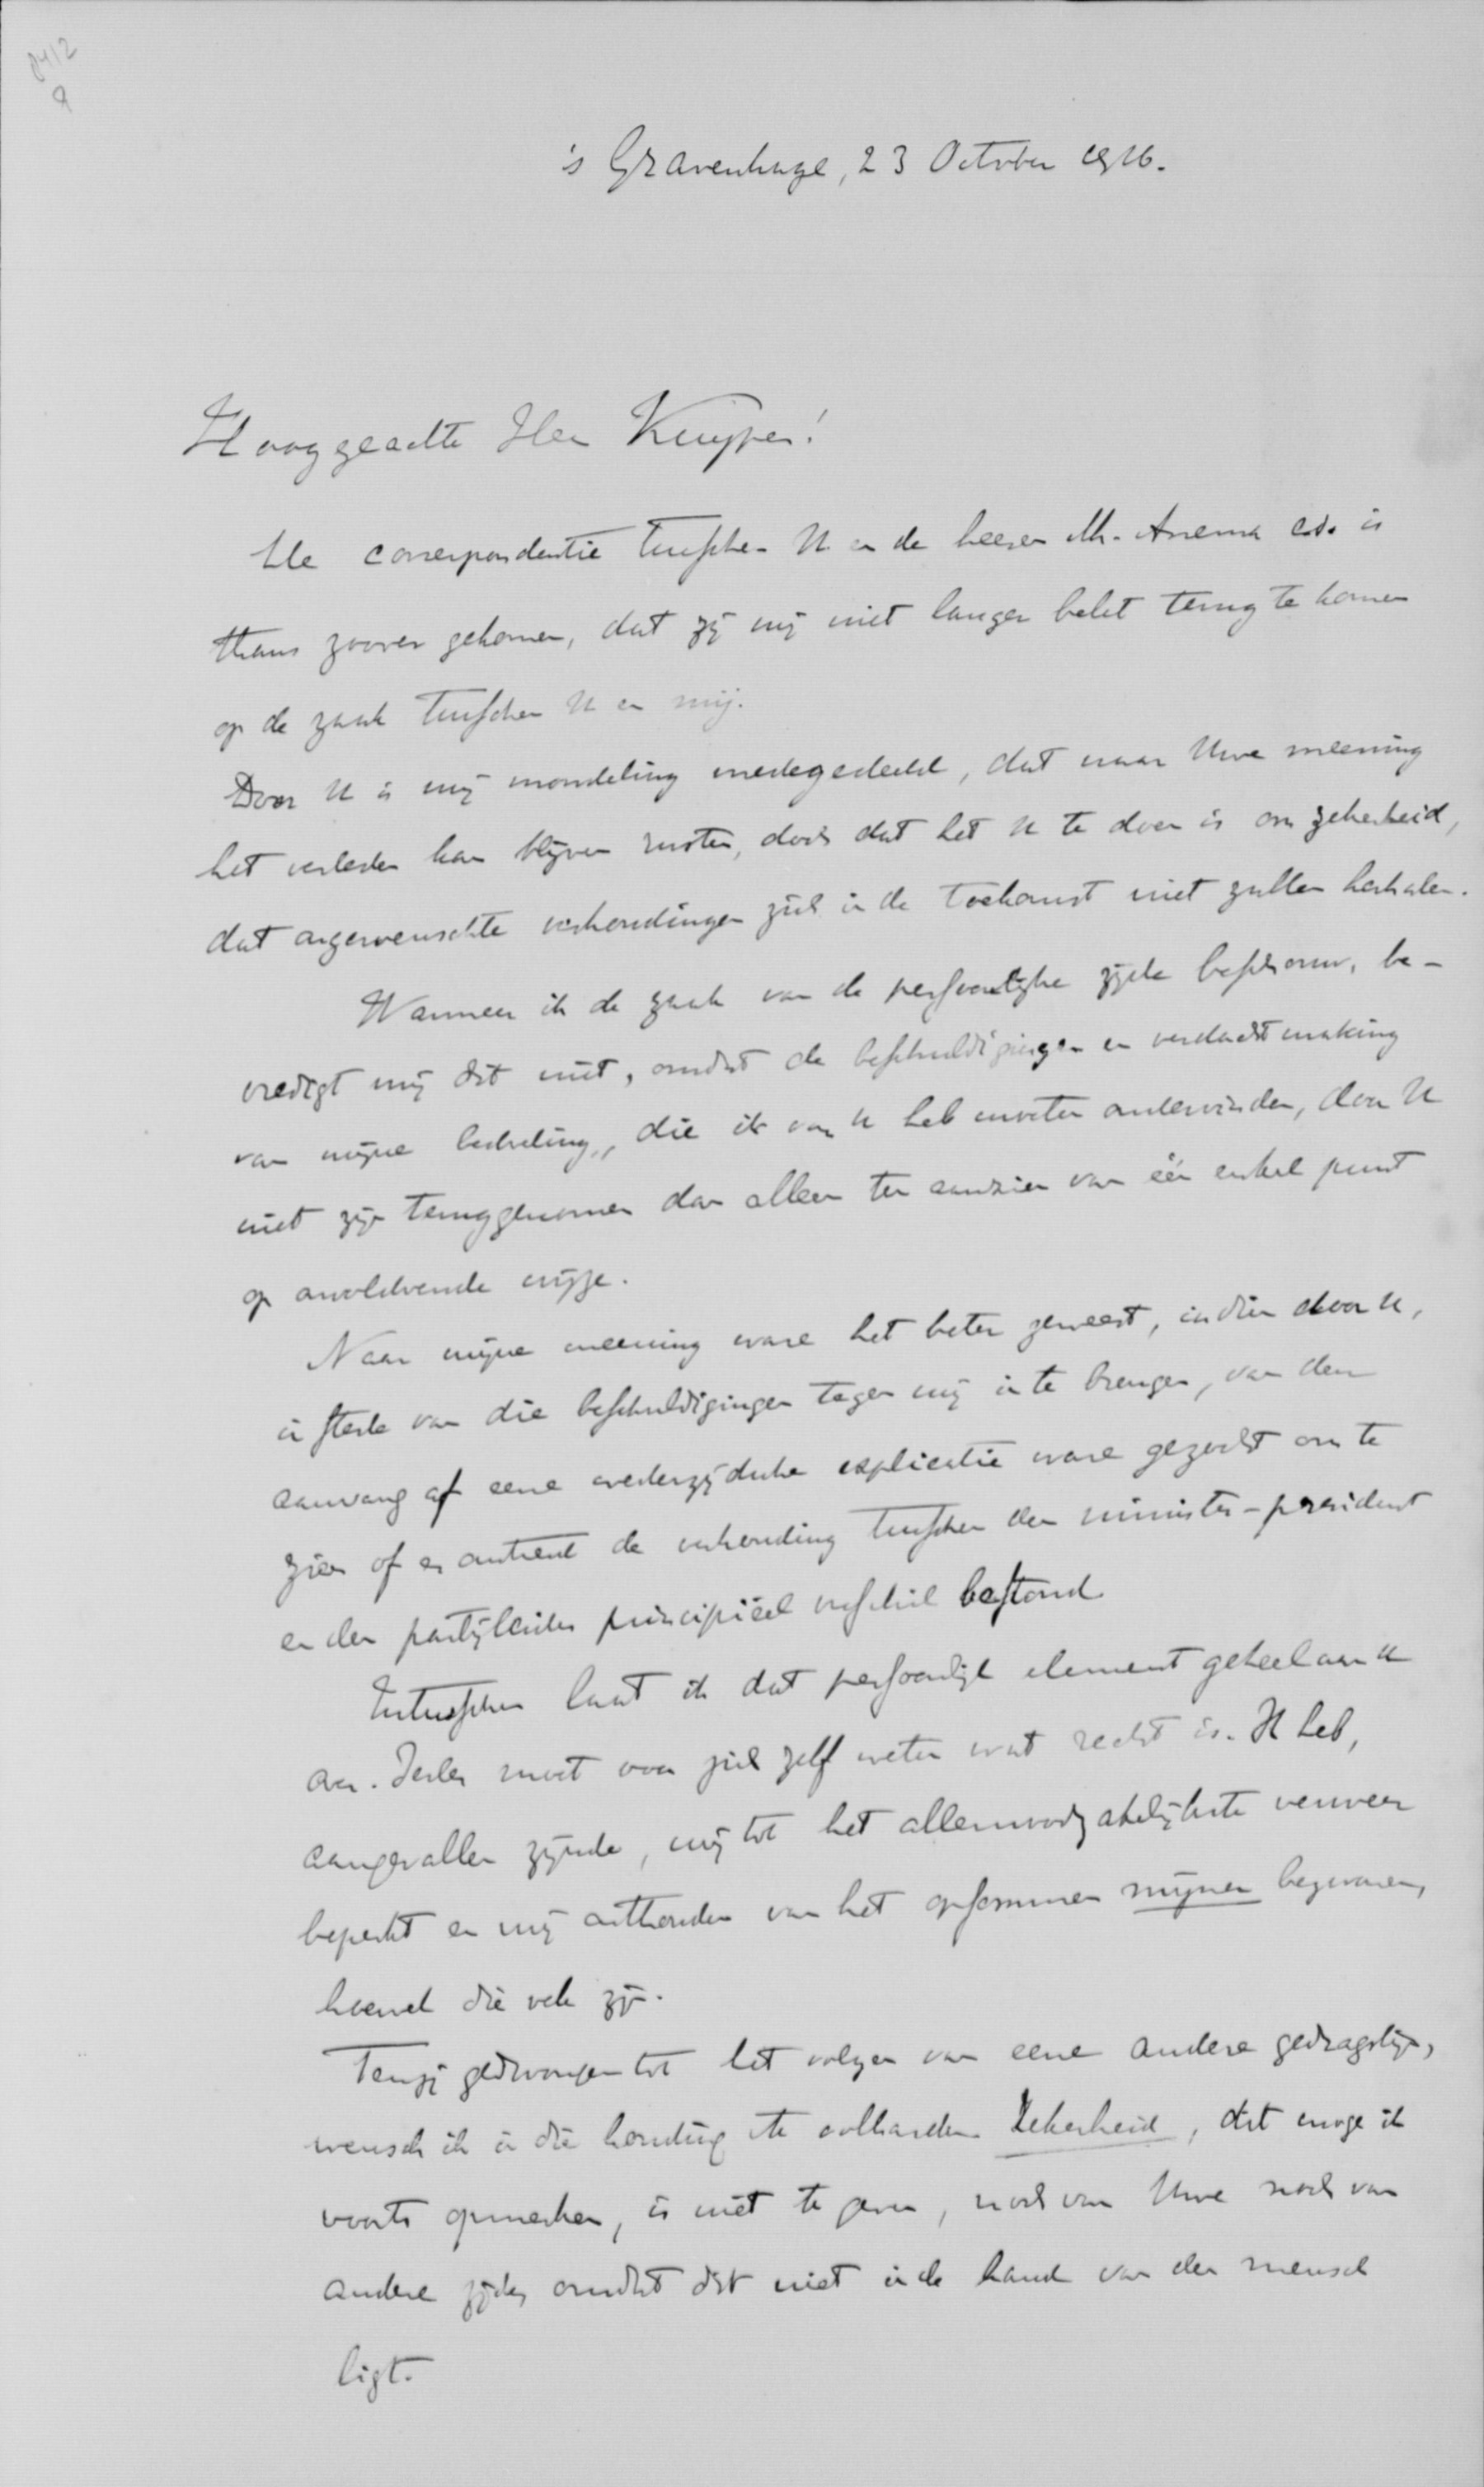 8412
9
's Gravenhage, 23 October 1916.
Hooggeachte Heer Kuyper!
De correspondentie tusschen U en de heeren Mr. Anema c.s. is
thans zoover gekomen, dat zij mij niet langer belet terug te komen
op de zaak tusschen U en mij.
Door U is mij mondeling medegedeeld, dat naar Uwe meening
het verleden kan blijven rusten, doch dat het U te doen is om zekerheid,
dat ongewenschte verhoudingen zich in de toekomst niet zullen herhalen.
Wanneer ik de zaak van de persoonlijke zijde beschouw, be-
vredigt mij dit niet, omdat de beschuldigingen en verdachtmaking
van mijne bedoeling, die ik van U heb moeten ondervinden, door U
niet zijn teruggenomen dan alleen ten aanzien van één enkel punt
op onvoldoende wijze.
Naar mijne meening ware het beter geweest, indien door U,
in stede van die beschuldigingen tegen mij in te brengen, van den
aanvang af eene wederzijdsche explicatie ware gezocht om te
zien of er omtrent de verhouding tusschen den minister-president
en den partijleider principiëel verschil bestond.
Intusschen laat ik dat persoonlijk element geheel aan U
over. Ieder moet voor zich zelf weten wat recht is. Ik heb,
aangevallen zijnde, mij tot het allernoodzakelijkste verweer
beperkt en mij onthouden van het opsommen mijner bezwaren,
hoewel die vele zijn.
Tenzij gedwongen tot het volgen van eene andere gedragslijn,
wensch ik in die houding te volharden. Zekerheid, dit moge ik
voorts opmerken, is niet te geven, noch van Uwe noch van
andere zijde, omdat dit niet in de hand van den mensch
ligt.